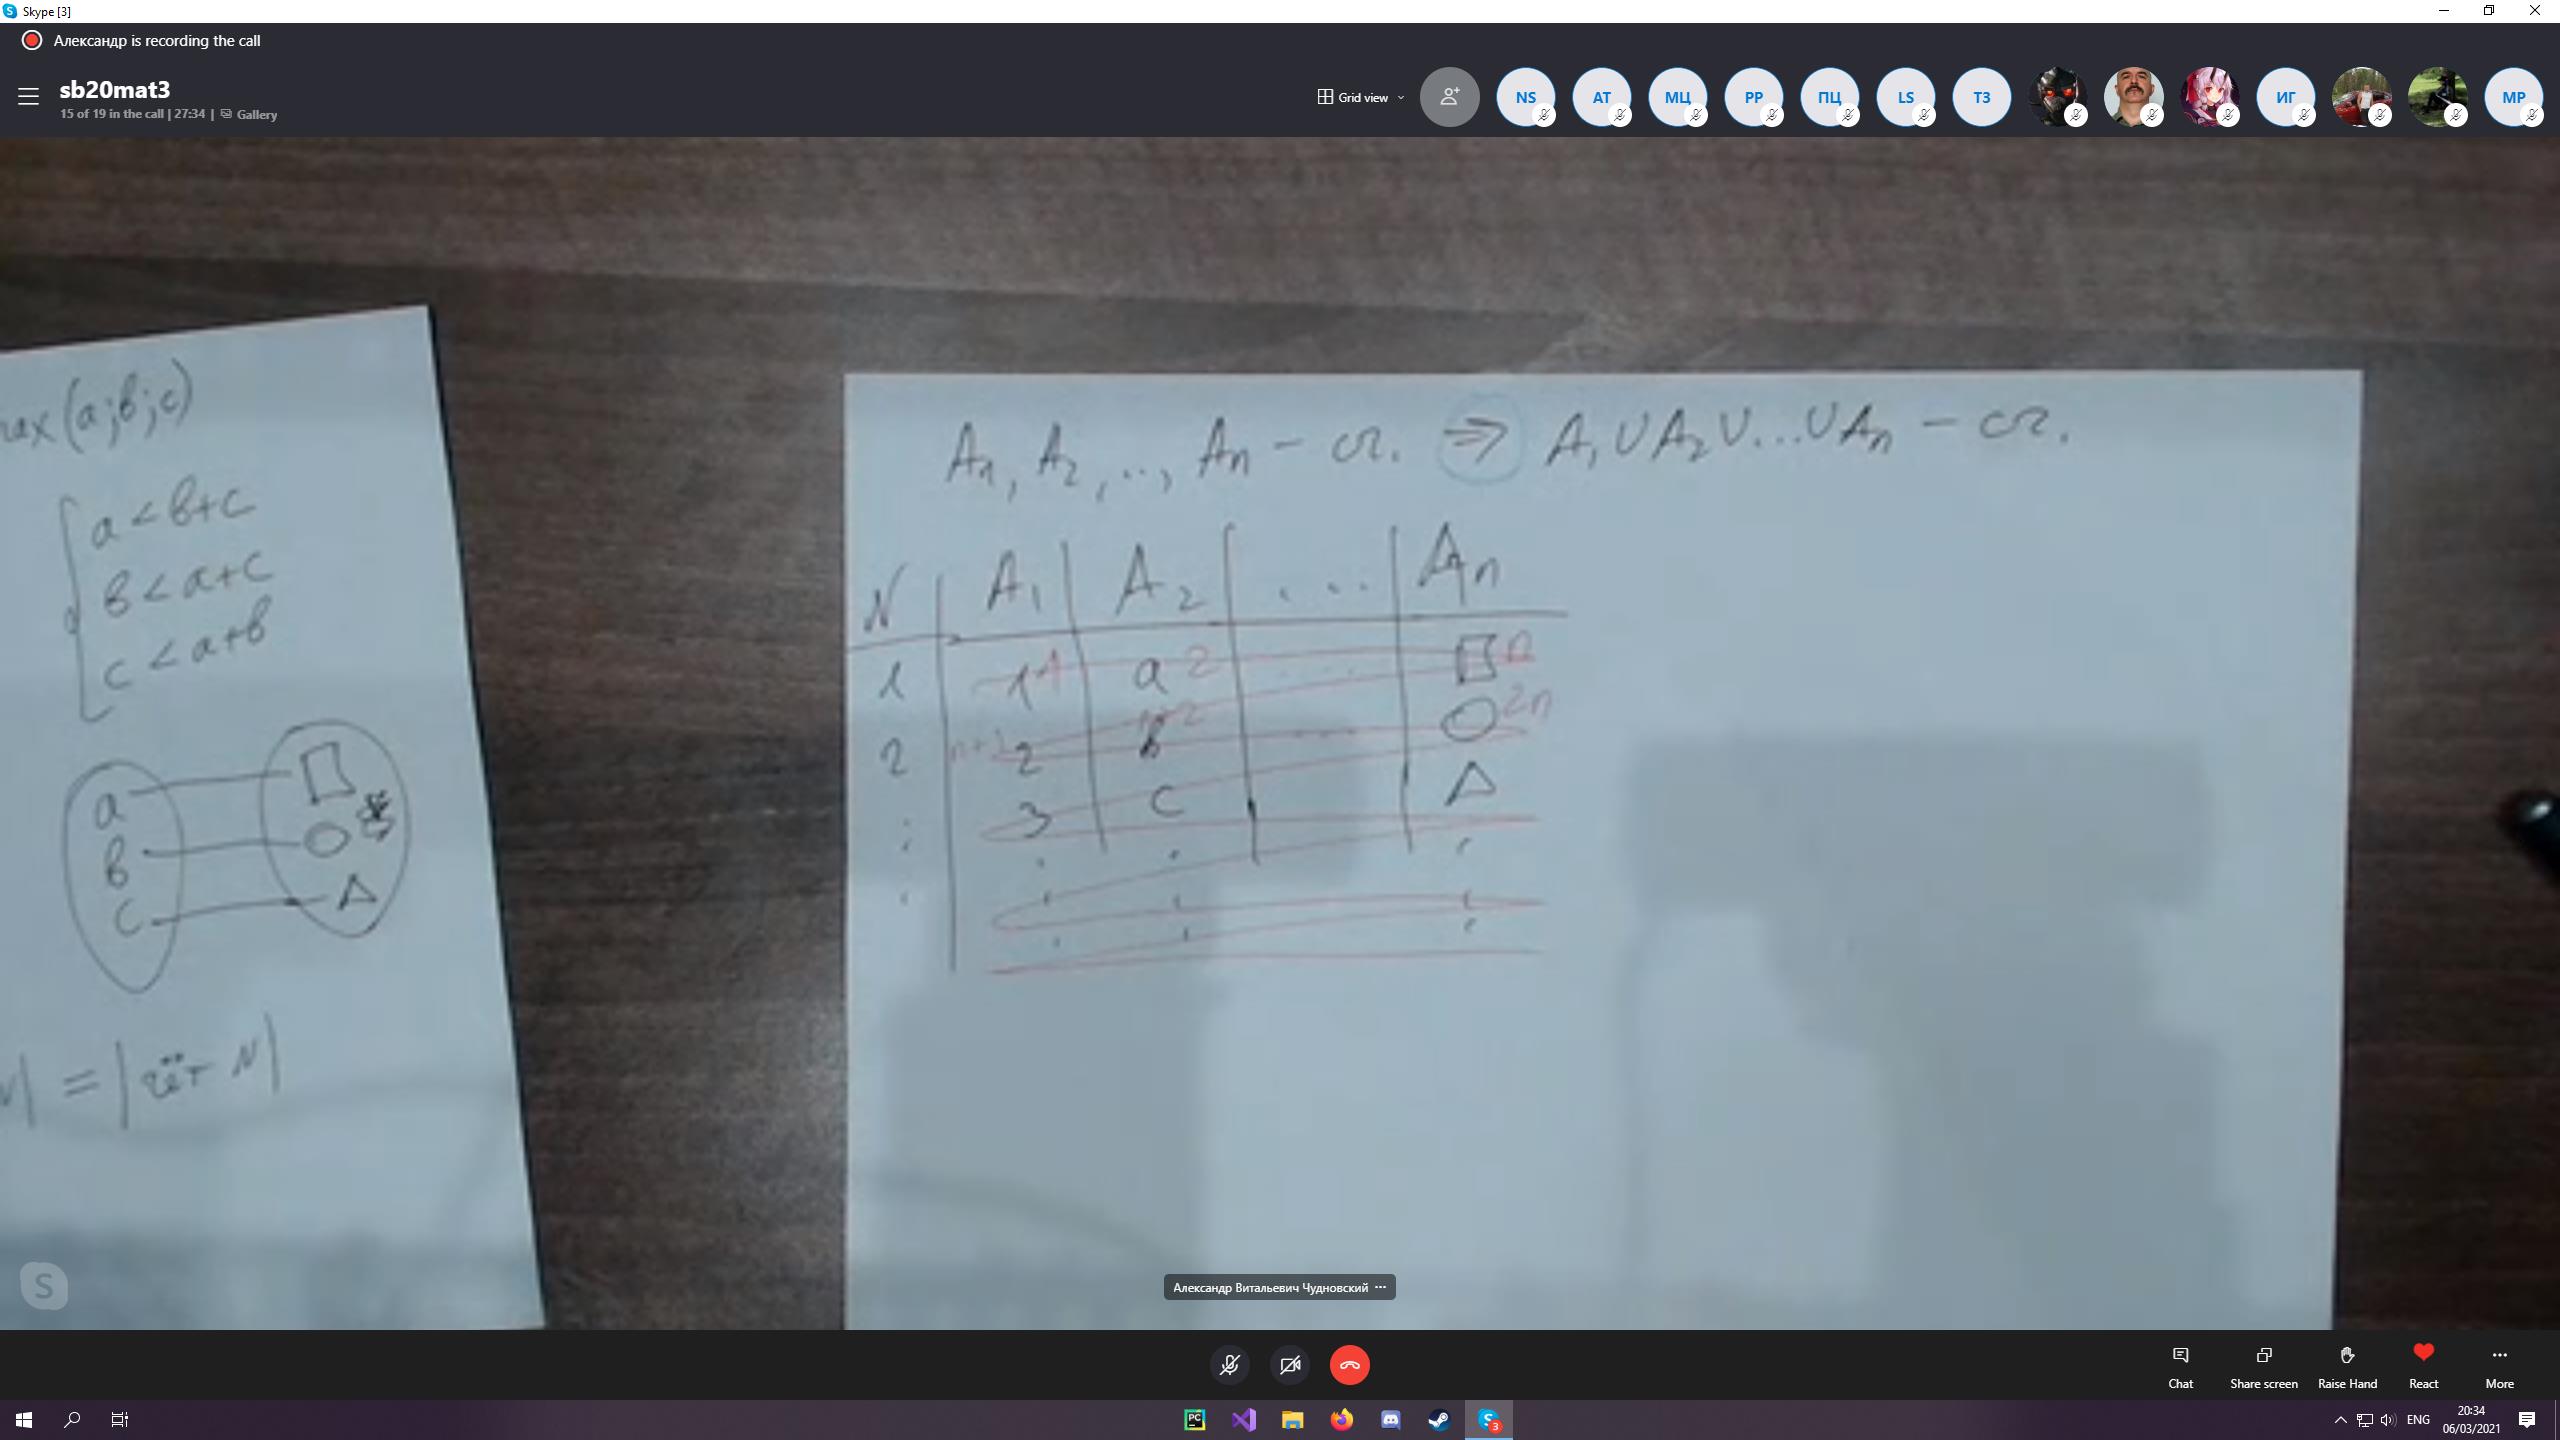 Skype [3]
Александр is recording the call
sb20mat3
15 of 19 in the call | 27:34 | Gallery
Grid view
NS
AT
МЦ
PP
ПЦ
LS
ТЗ
ИГ
MP
max(a;b;c)
a < b+c
b < a+c
c < a+b
a
b
c
| = | чёт N |
A₁, A₂, ..., Aₙ — сч. ⇒ A₁ ∪ A₂ ∪ ... ∪ Aₙ — сч.
N A₁ A₂ ... Aₙ
1 1 1 a 2 ... □ n
2 n+1 2 b ... ○ 2n
3 c △
Александр Витальевич Чудновский ...
Chat
Share screen
Raise Hand
React
More
PC
S
3
ENG
20:34
06/03/2021